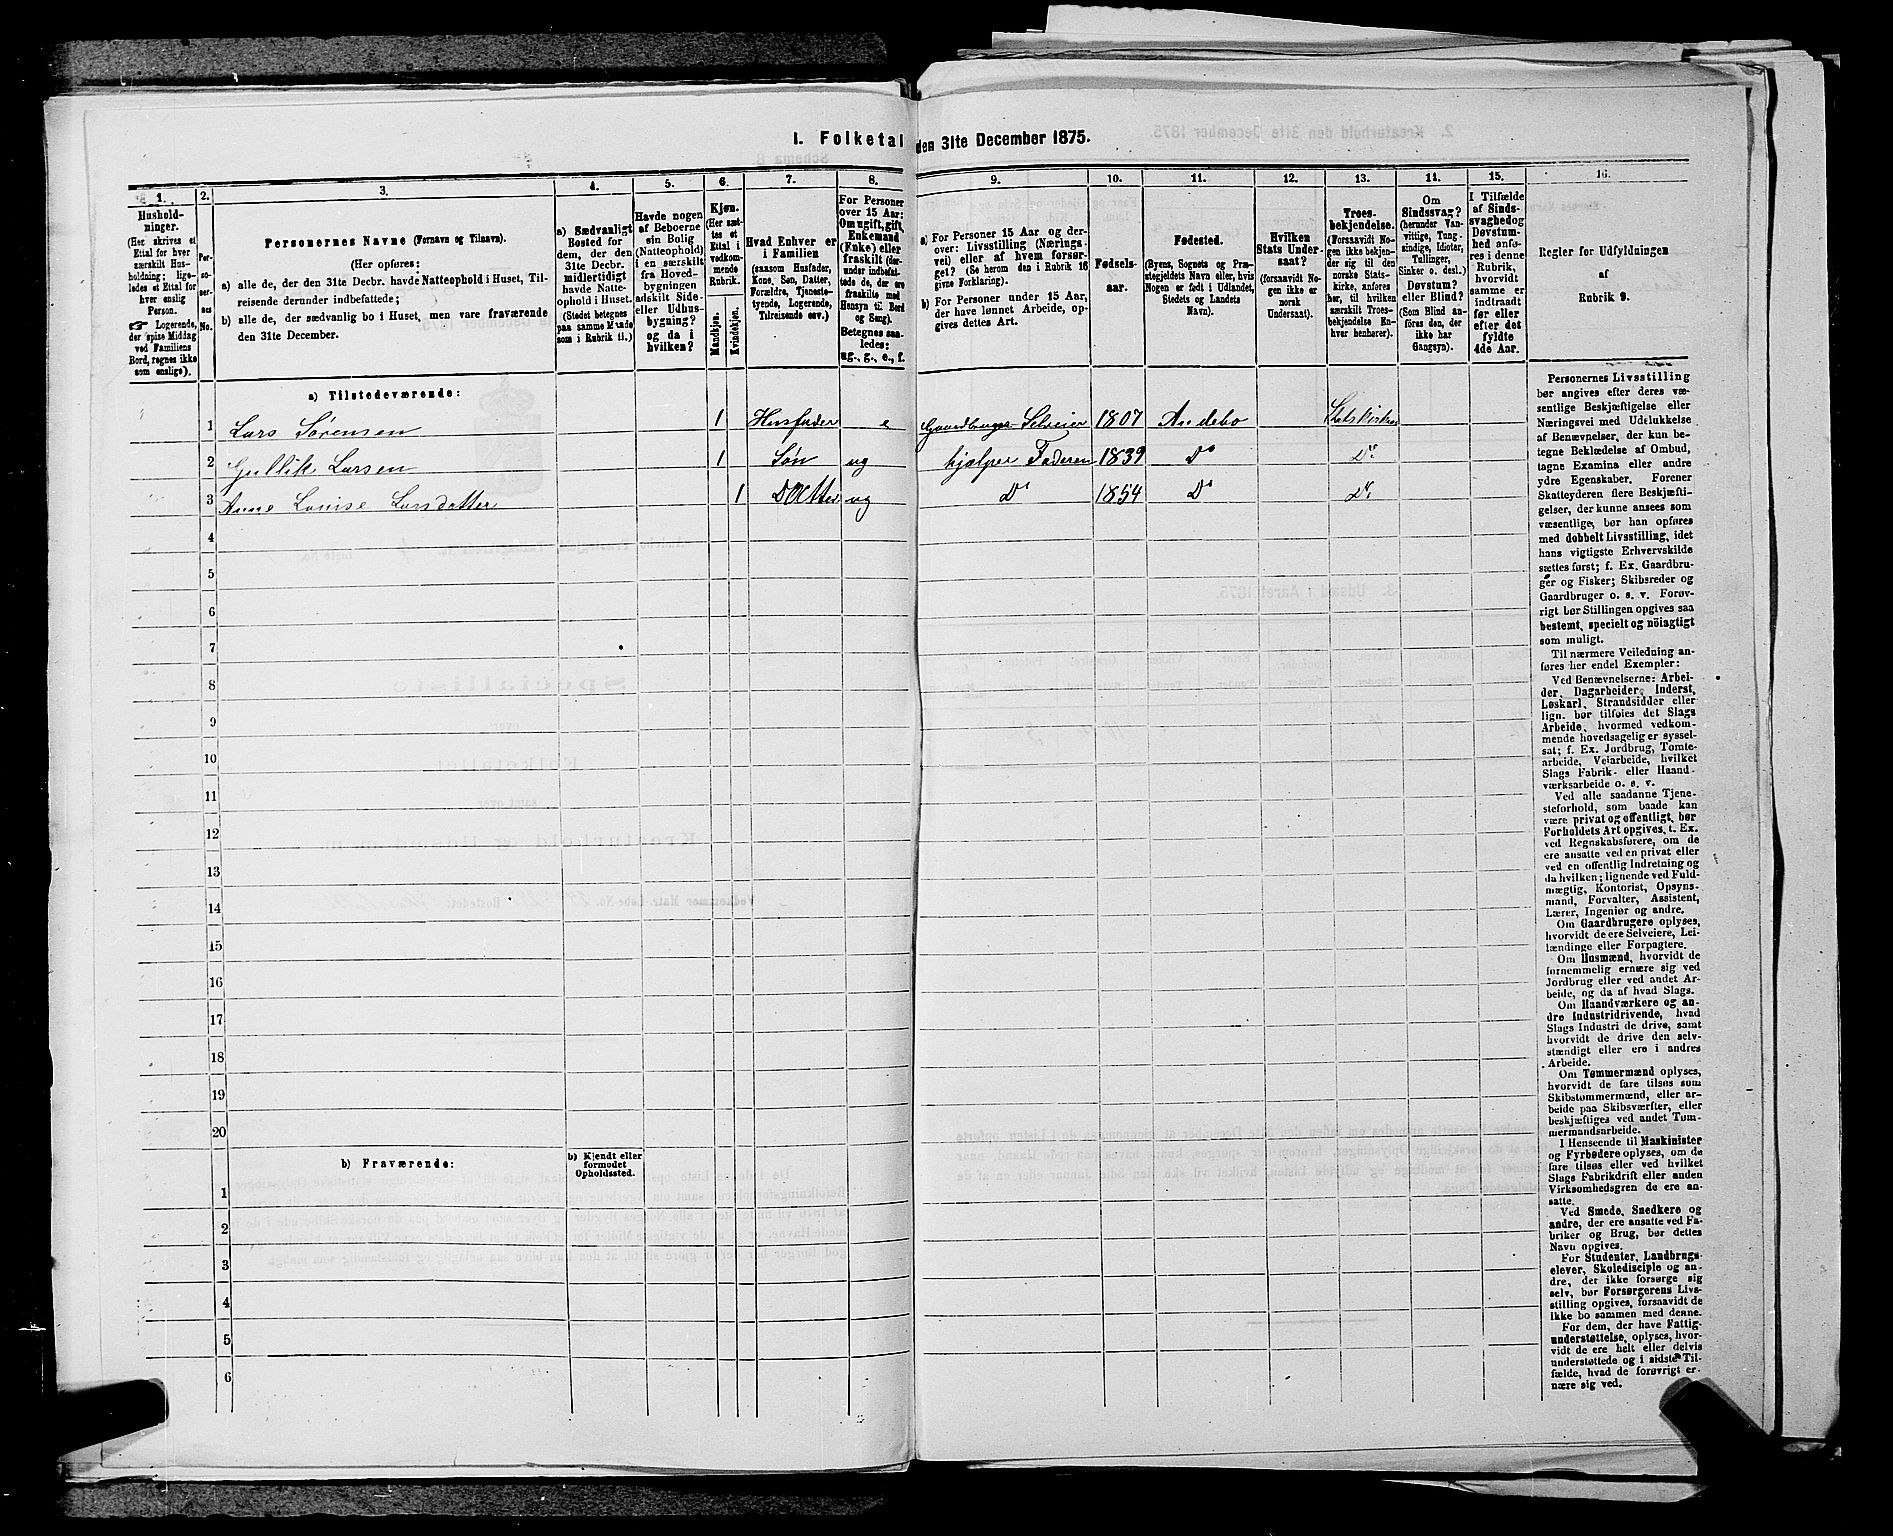 1. Folketal den 31te December 1875.
1. 2. 3. 4. 5. 6. 7. 8. 9. 10. 11. 12. 13. 14. 15. 16.
Hushold-
ninger.
(Her skrives et
Ettal for hver
særskilt Hus-
holdning; lige-
ledes et Ettal for
hver enslig
Person.
☞ Logerende,
der spise Middag
ved Familiens
Bord, regnes ikke
som enslige).
Per-
so-
ner-
nes
No.
Personernes Navne (Fornavn og Tilnavn).
(Her opføres:
a) alle de, der den 31te Decbr. havde Natteophold i Huset, Til-
reisende derunder indbefattede;
b) alle de, der sædvanlig bo i Huset, men vare fraværende
den 31te December.
a) Sædvanligt
Bosted for
dem, der den
31te Decbr.
midlertidigt
havde Natte-
ophold i Huset.
(Stedet betegnes
paa samme Maade
som i Rubrik 11.)
Havde nogen
af Beboerne
sin Bolig
(Natteophold)
i en særskilt
fra Hoved-
bygningen
adskilt Side-
eller Udhus-
bygning?
og da i
hvilken?
Kjøn.
(Her sæt-
tes et
Ettal i
vedkom-
mende
Rubrik.
Mandkjøn.
Kvindekjøn.
Hvad Enhver er
i Familien
(saasom Husfader,
Kone, Søn, Datter,
Forældre, Tjeneste-
tyende, Logerende,
Tilreisende osv.)
For Personer
over 15 Aar:
Om ugift, gift,
Enkemand
(Enke) eller
fraskilt (der-
under indbefat-
tede de, der ere
fraskilte med
Hensyn til Bord
og Seng).
Betegnes saa-
ledes:
ug., g., e., f.
a) For Personer 15 Aar og der-
over: Livsstilling (Nærings-
vei) eller af hvem forsør-
get? (Se herom den i Rubrik 16
givne Forklaring).
b) For Personer under 15 Aar,
der have lønnet Arbeide, op-
gives dettes Art.
Fødsels-
aar.
Fødested.
(Byens, Sognets og Præ-
stegjeldets Navn eller, hvis
Nogen er født i Udlandet,
Stedets og Landets
Navn).
Hvilken
Stats Under-
saat?
(forsaavidt No-
gen ikke er
norsk
Undersaat).
Troes-
bekjendelse.
(Forsaavidt No-
gen ikke bekjen-
der sig til den
norske Stats-
kirke, anføres
her, til hvilken
særskilt Troes-
bekjendelse En-
hver henhører).
Om
Sindssvag?
(herunder Van-
vittige, Tung-
sindige, Idioter,
Tullinger,
Sinker o. desl.)
Døvstum?
eller Blind?
(Som Blind an-
føres den, der
ikke har
Gangsyn).
I Tilfælde
af Sinds-
svaghed og
Døvstum-
hed anfø-
res i denne
Rubrik,
hvorvidt
samme er
indtraadt
før eller
efter det
fyldte
4de Aar.
Regler for Udfyldningen
af
Rubrik 9.
a) Tilstedeværende:
1 Lars Sørensen 1 Husfader e Gaardbruger Selveier 1807 Andebo Statskirken
2 Gullik Larsen 1 Søn ug hjælper Faderen 1839 Do Do
3 Anne Louise Larsdatter 1 Datter ug Do 1854 Do Do
4
5
6
7
8
9
10
11
12
13
14
15
16
17
18
19
20
b) Fraværende:
b) Kjendt eller
formodet
Opholdssted.
1
2
3
4
5
6
Personernes Livsstilling
bør angives efter deres væ-
sentlige Beskjæftigelse eller
Næringsvei med Udelukkelse
af Benævnelser, der kun be-
tegne Beklædelse af Ombud,
tagne Examina eller andre
ydre Egenskaber. Forener
Skatteyderen flere Beskjæfti-
gelser, der kunne ansees som
væsentlige, bør han opføres
med dobbelt Livsstilling, idet
hans vigtigste Erhvervskilde
sættes først; f. Ex. Gaardbru-
ger og Fisker; Skibsreder og
Gaardbruger o. s. v. Forøv-
rigt bør Stillingen opgives saa
bestemt, specielt og nöiagtigt
som muligt.
Til nærmere Veiledning an-
føres her endel Exempler:
Ved Benævnelserne: Arbei-
der, Dagarbeider, Inderst,
Løskarl, Strandsidder eller
lign. bør tilføies det Slags
Arbeide, hvormed vedkom-
mende hovedsagelig er syssel-
sat; f. Ex. Jordbrug, Tomte-
arbeide, Veiarbeide, hvilket
Slags Fabrik- eller Haand-
værksarbeide o. s. v.
Ved alle saadanne Tjene-
steforhold, som baade kan
være privat og offentligt, bør
Forholdets Art opgives, t. Ex.
ved Regnskabsførere, om de
ere ansatte ved en privat eller
ved en offentlig Indretning og
da hvilken; lignende ved Fuld-
mægtig, Kontorist, Opsyns-
mand, Forvalter, Assistent,
Lærer, Ingeniør og andre.
Om Gaardbrugere oplyses,
hvorvidt de ere Selveiere, Lei-
lændinge eller Forpagtere.
Om Husmænd, hvorvidt de
fornemmelig ernære sig ved
Jordbrug eller ved andet Ar-
beide, og da af hvad Slags.
Om Haandværkere og an-
dre Industridrivende, hvad
Slags Industri de drive, samt
hvorvidt de drive den selv-
stændigt eller ere i andres
Arbeide.
Om Tømmermænd oplyses,
hvorvidt de fare tilsøs som
Skibstømmermænd, eller ar-
beide paa Skibsværfter, eller
beskjæftiges ved andet Tøm-
mermandsarbeide.
I Henseende til Maskinister
og Fyrbødere oplyses, om de
fare tilsøs eller ved hvilket
Slags Fabrikdrift eller anden
Virksomhedsgren de ere an-
satte.
Ved Smede, Snedkere og
andre, der ere ansatte ved Fa-
briker og Brug, bør dettes
Navn opgives.
For Studenter, Landbrugs-
elever, Skoledisciple og an-
dre, der ikke forsørge sig
selv, bør Forsørgerens Livs-
stilling opgives, forsaavidt de
ikke bo sammen med denne.
For dem, der have Fattig-
understøttelse, oplyses, hvor-
vidt de ere helt eller delvis
understøttede og i sidste Til-
fælde, hvad de forøvrigt er-
nære sig ved.